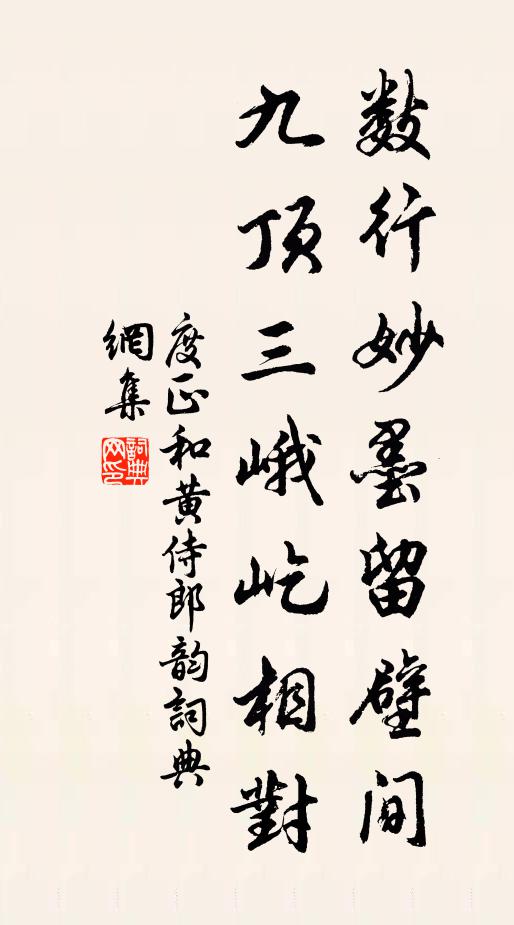 数行妙墨留壁间
九顶三峨屹相對
度正和黄侍郎韵詞典
網集
詞典網印